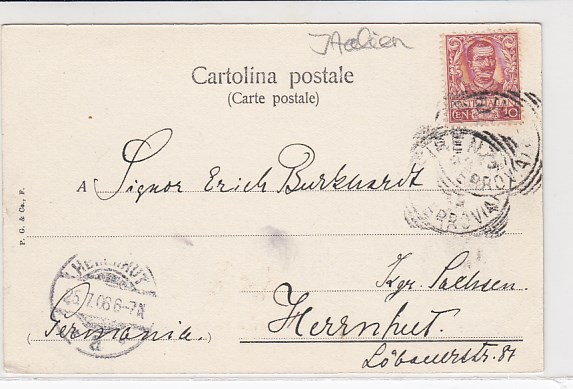 Italien
Cartolina postale
(Carte postale)
POSTE ITALIANE
CEN 10
FIRENZE
PROVIA
FERROVIA
A Signor Erich Burkhardt
P. G. & Co., F.
HERRNHUT
25/7 06 6-7N
a
Kgr. Sachsen.
(Germania.) Herrnhut.
Löbauerstr. 81